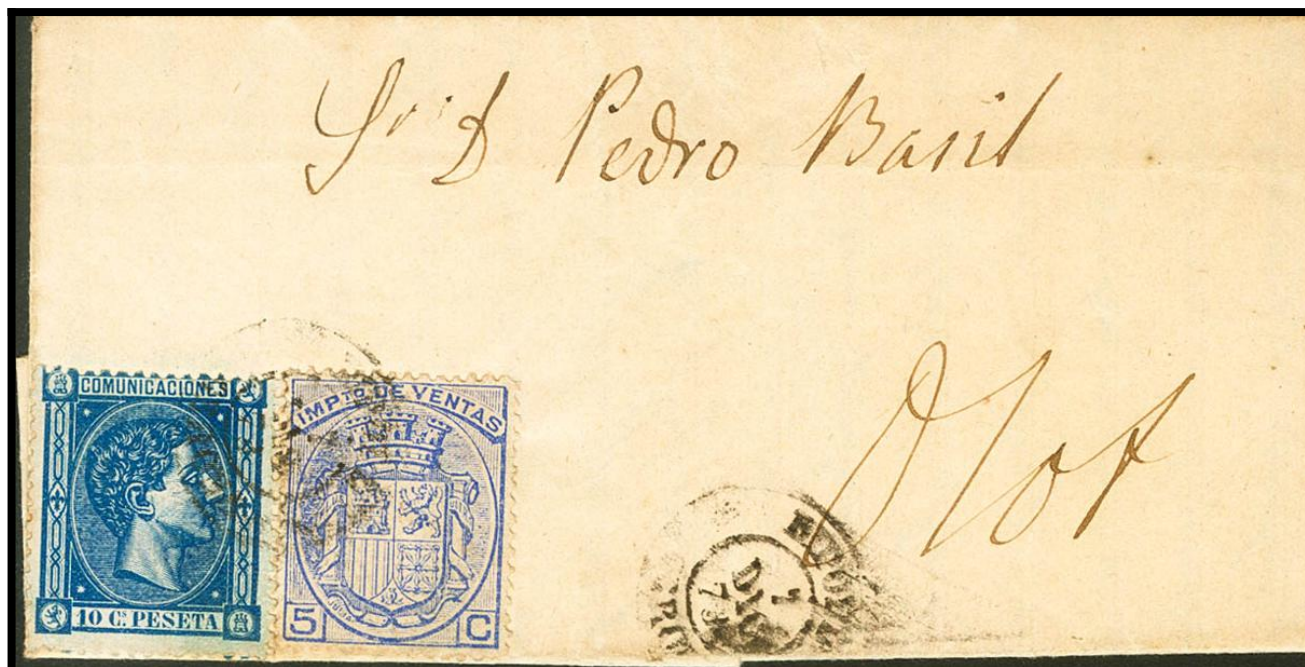 Sr D Pedro Basil
Olot
COMUNICACIONES
10 CS PESETA
IMPTO DE VENTAS
5 C
1